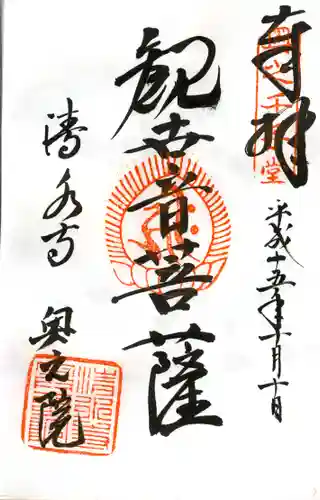 奉拝
平成十五年十月十日
観世音菩薩
清水寺
奥之院